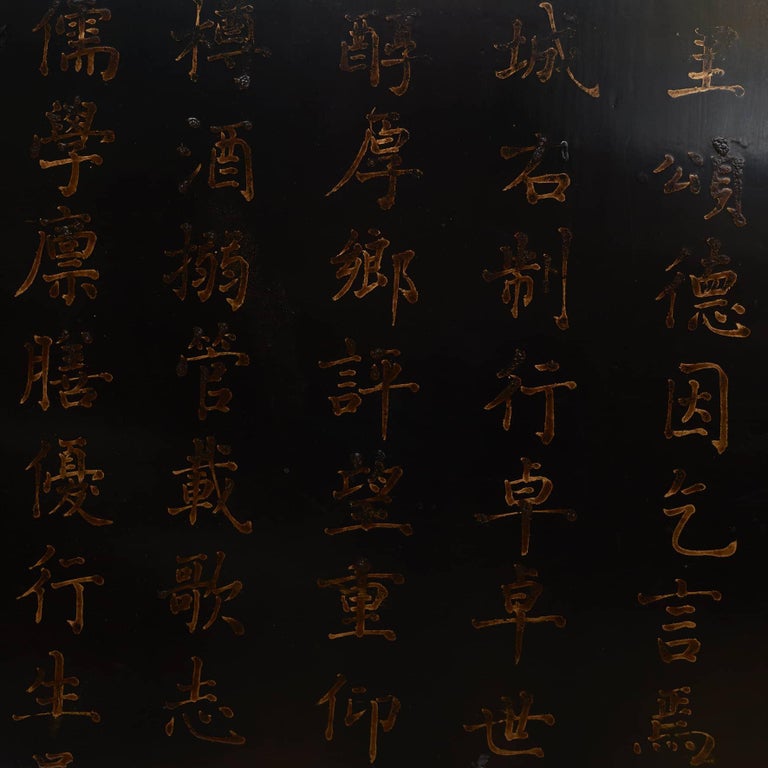 里頌德因乞言焉
城石制行卓卓世
醇厚鄉評望重仰
樽酒搦管載歌志
儒學廩膳優行生